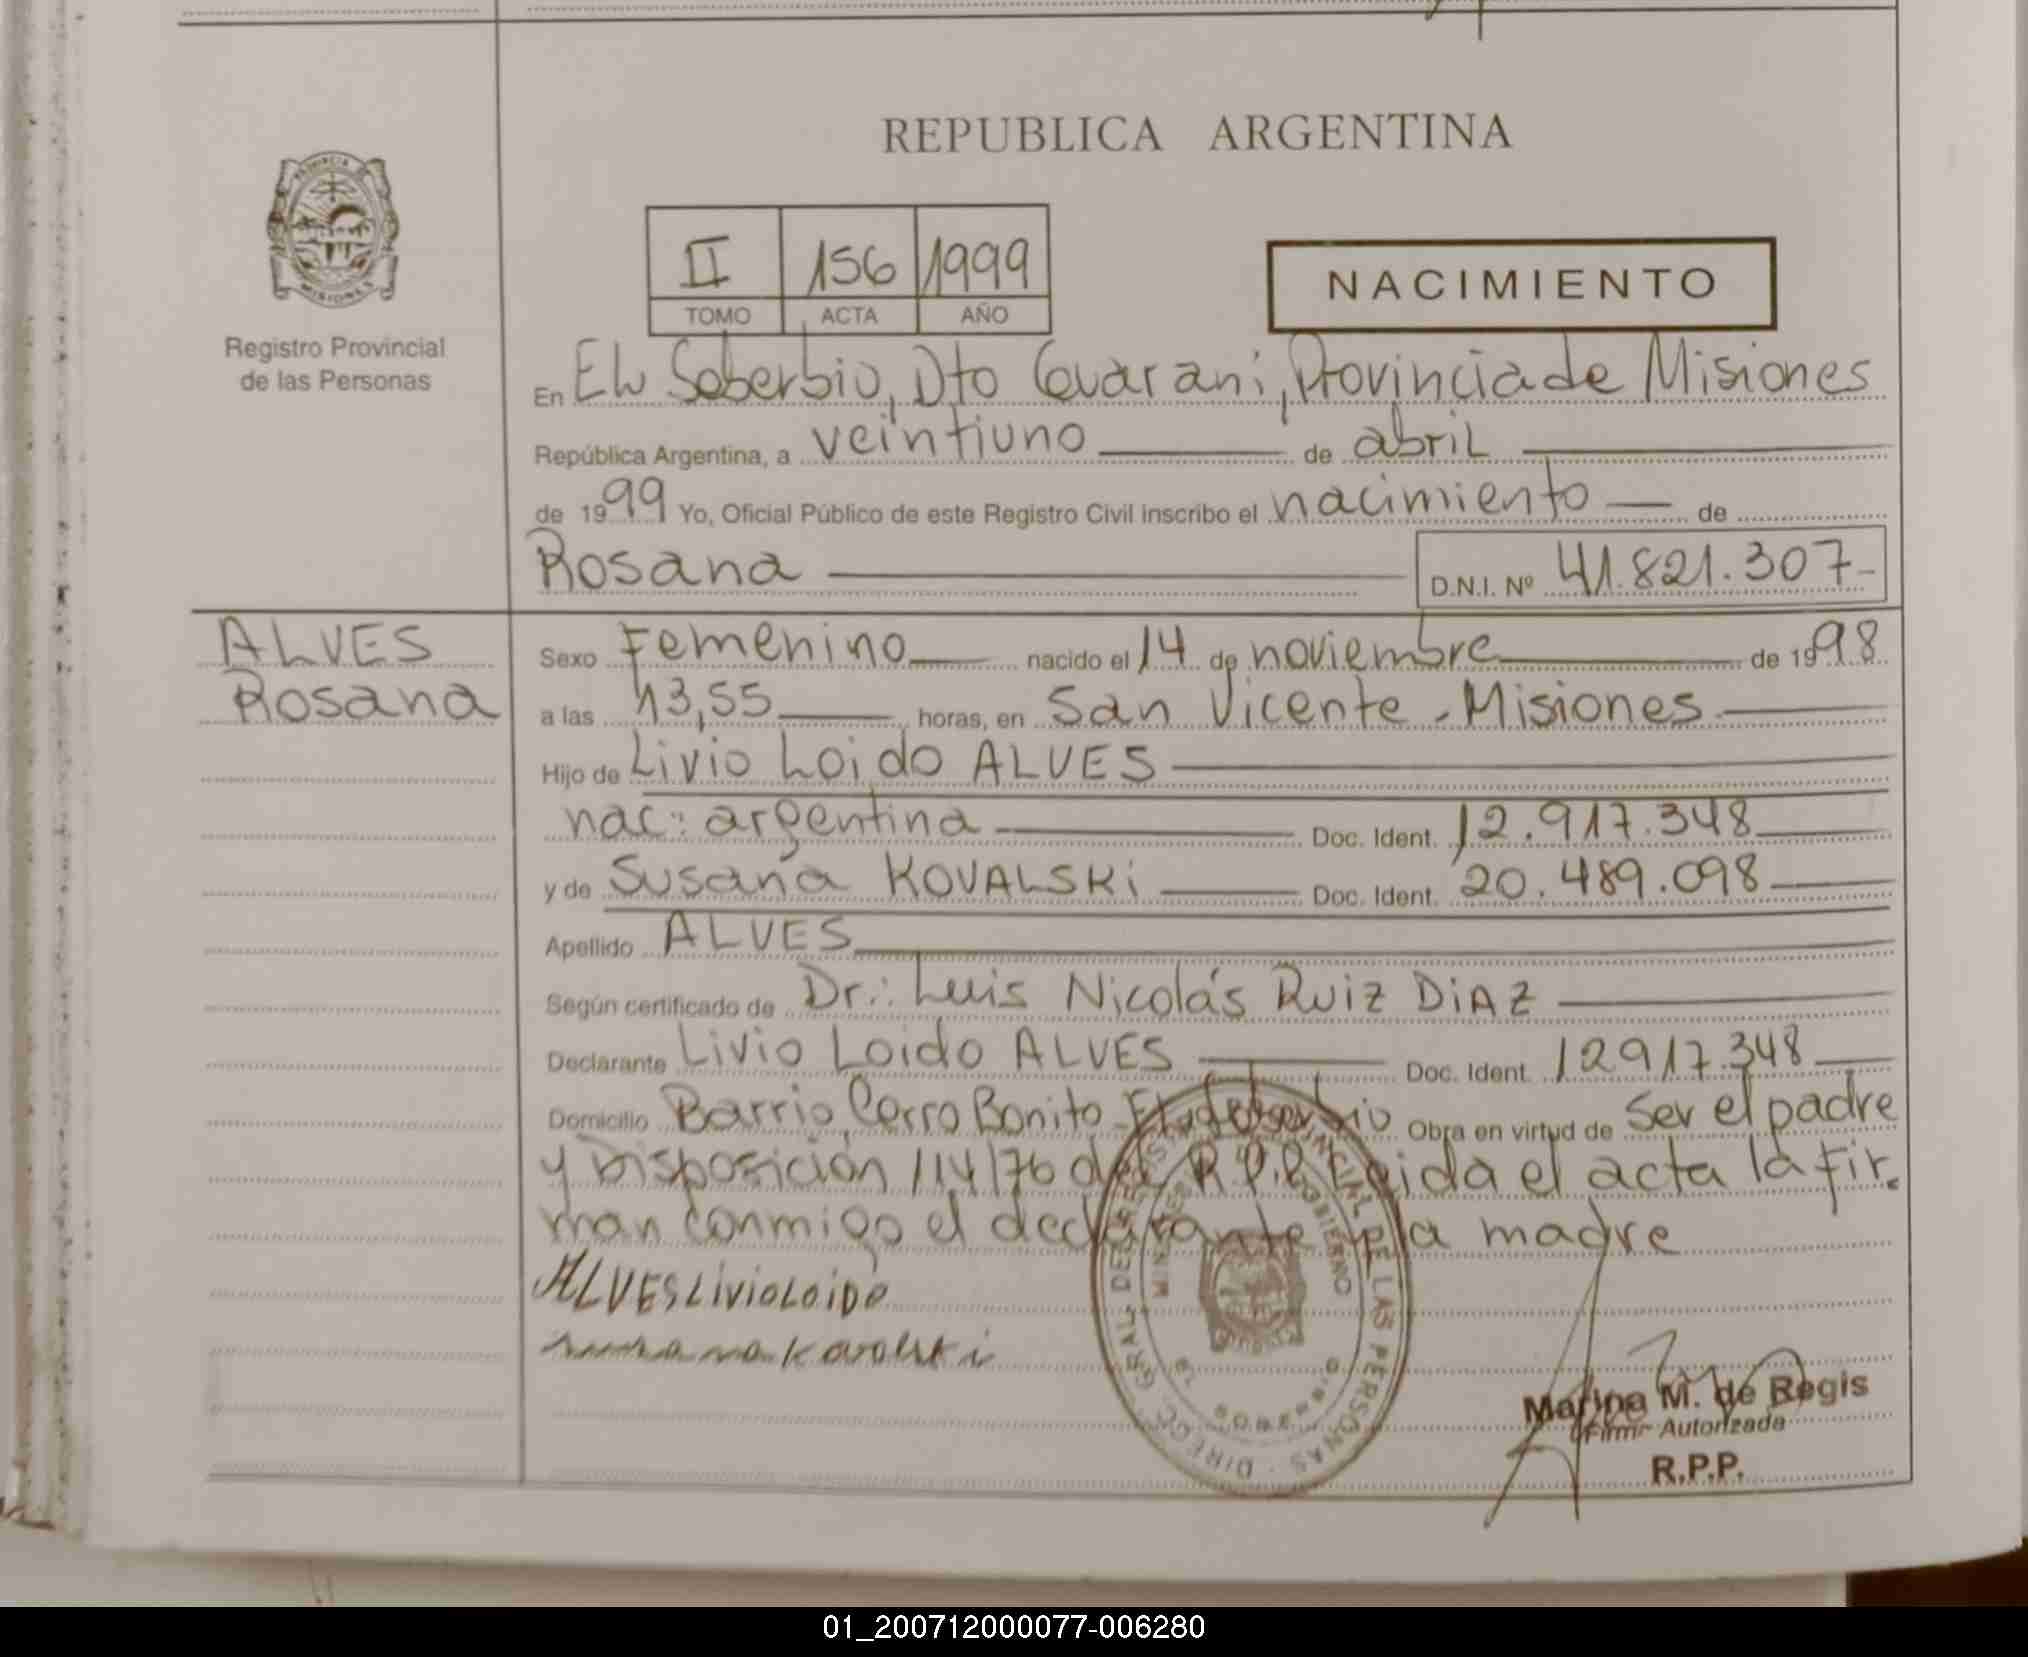 REPUBLICA ARGENTINA
PROVINCIA DE
MISIONES
Registro Provincial
de las Personas
II 156 1999
TOMO ACTA AÑO
NACIMIENTO
En EL Soberbio, Dto Guarani, Provincia de Misiones
República Argentina, a veintiuno de abril
de 1999 Yo, Oficial Público de este Registro Civil inscribo el nacimiento de
Rosana D.N.I. Nº 41.821.307-
ALVES
Rosana
Sexo Femenino nacido el 14 de noviembre de 1998
a las 13,55 horas, en San Vicente - Misiones
Hijo de Livio Loido ALVES
nac: argentina Doc. Ident. 12.917.348
y de Susana KOVALSKi Doc. Ident. 20.489.098
Apellido ALVES
Según certificado de Dr.: Luis Nicolás Ruiz DiAZ
Declarante Livio Loido ALVES Doc. Ident. 12917.348
Domicilio Barrio Cerro Bonito - EL Soberbio Obra en virtud de Ser el padre
y Disposición 114/76 del R.P.P. Leida el acta la fir.
man conmigo el declarante y la madre
ALVES LIVIO LOIDO
susana Kovalski
DIREC. GRAL. DE REGISTRO PROVINCIAL DE LAS PERSONAS
MINISTERIO DE GOBIERNO
EL SOBERBIO
Marina M. de Regis
Firma Autorizada
R.P.P.
01_200712000077-006280